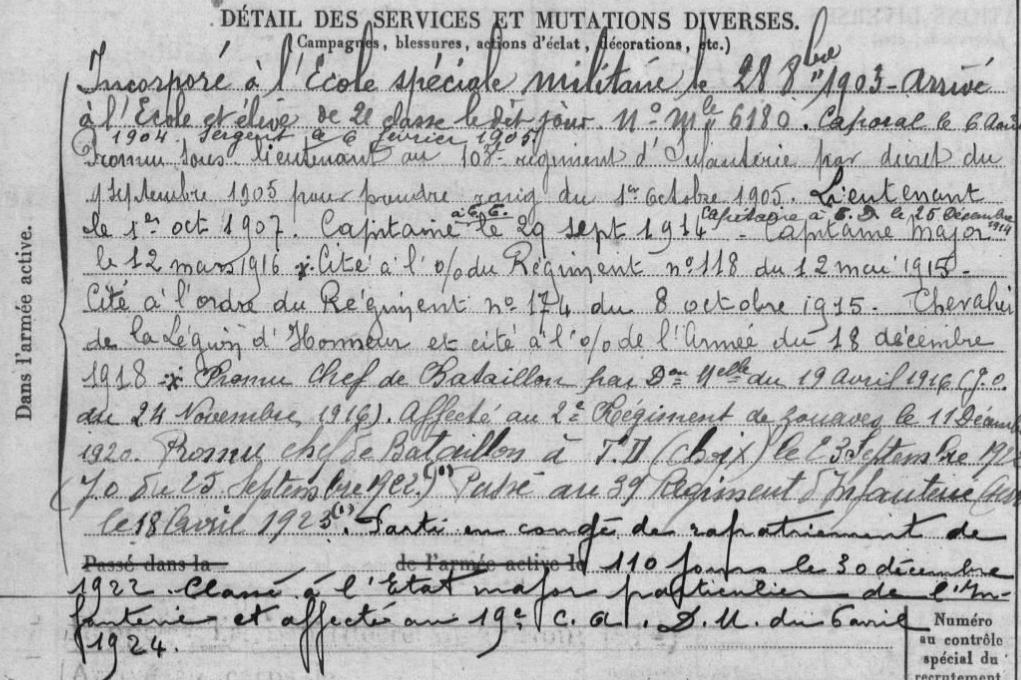 DÉTAIL DES SERVICES ET MUTATIONS DIVERSES.
(Campagnes, blessures, actions d'éclat, décorations, etc.)
Dans l'armée active.
Incorporé à l'École spéciale militaire le 28 8bre 1903 - Arrivé
à l'École et élève de 2e classe le dit jour. No Mle 6180. Caporal le 6 Août
1904. Sergent le 6 février 1905.
Promu sous lieutenant au 108e régiment d'Infanterie par décret du
Septembre 1905 pour prendre rang du 1er Octobre 1905. Lieutenant
à T.T. Capitaine à T.D le 25 Décembre 1914
le 1er oct 1907. Capitaine le 29 sept 1914 - Capitaine major
le 12 mars 1916 x Cité à l'o/o du Régiment no 118 du 12 mai 1915 -
Cité à l'ordre du Régiment no 174 du 8 octobre 1915. Chevalier
de la Légion d'Honneur et cité à l'o/o de l'Armée du 18 décembre
1918 x Promu Chef de Bataillon par Don Melle du 19 avril 1916 (J.O.
du 24 Novembre 1916). Affecté au 2e Régiment de zouaves le 11 Décemb
1920. Promu chef de Bataillon à T.D (choix) le 23 Septembre
(J.O du 25 Septembre 1922.) Passé au 39 Régiment d'Infanterie
le 18 avril 1923 (1). Parti en congé de rapatriement de
Passé dans la de l'armée active le 110 jours le 30 décembre
1922. Classé à l'Etat major particulier de l'In-
fanterie et affecté au 19e C.A. D.M. du 6 avril
1924.
Numéro
au contrôle
spécial du
recrutement